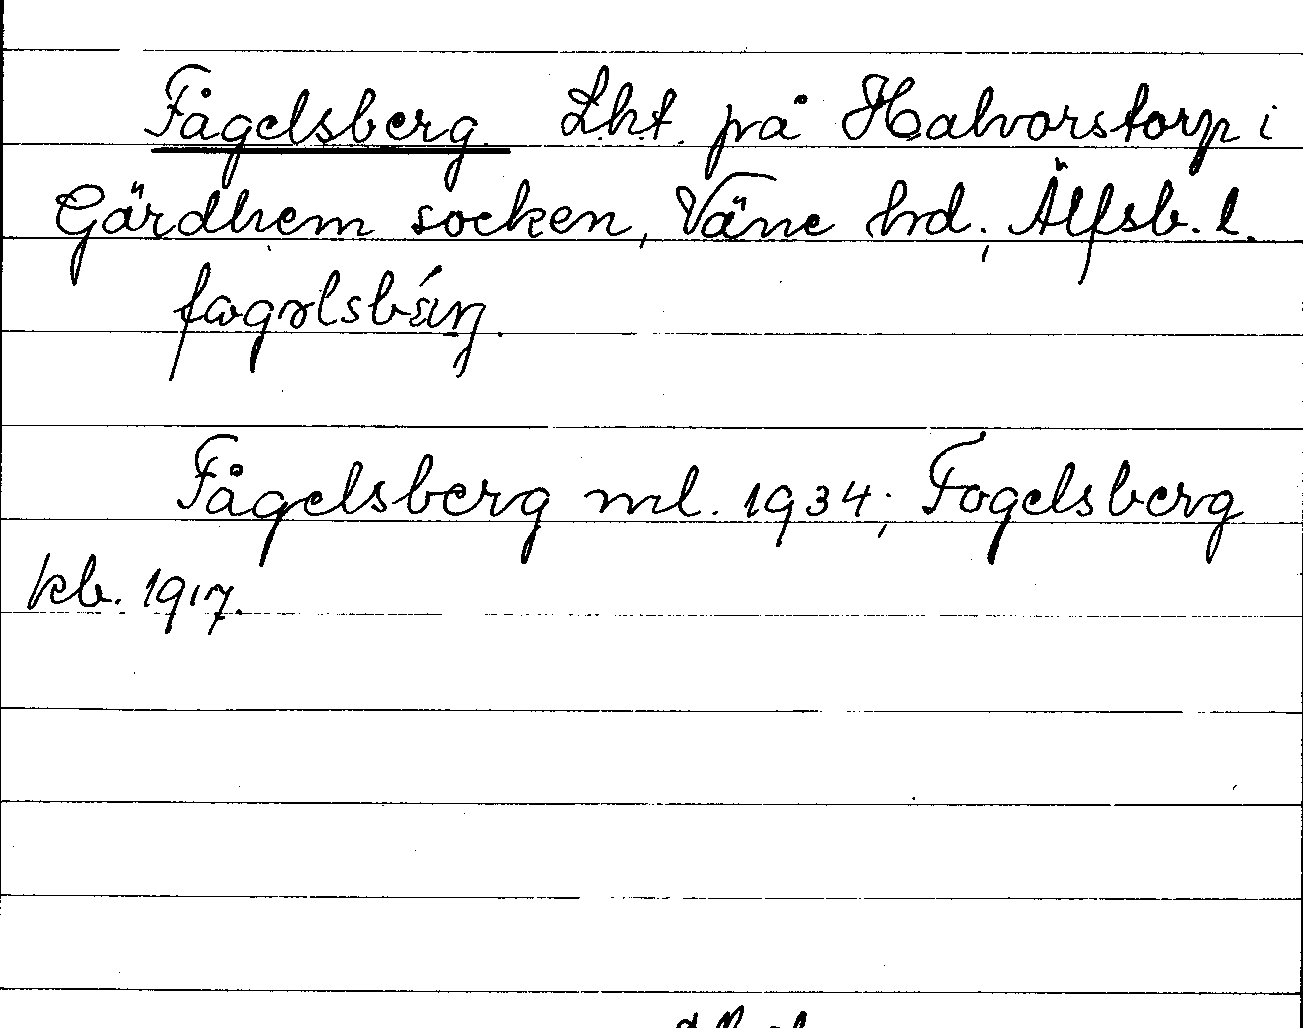 Fågelsberg. Lht. på Halvorstorp i
Gärdhem socken, Väne hd., Älfsb. l.
Fågelsberg ml. 1934; Fogelsberg
kb. 1917.